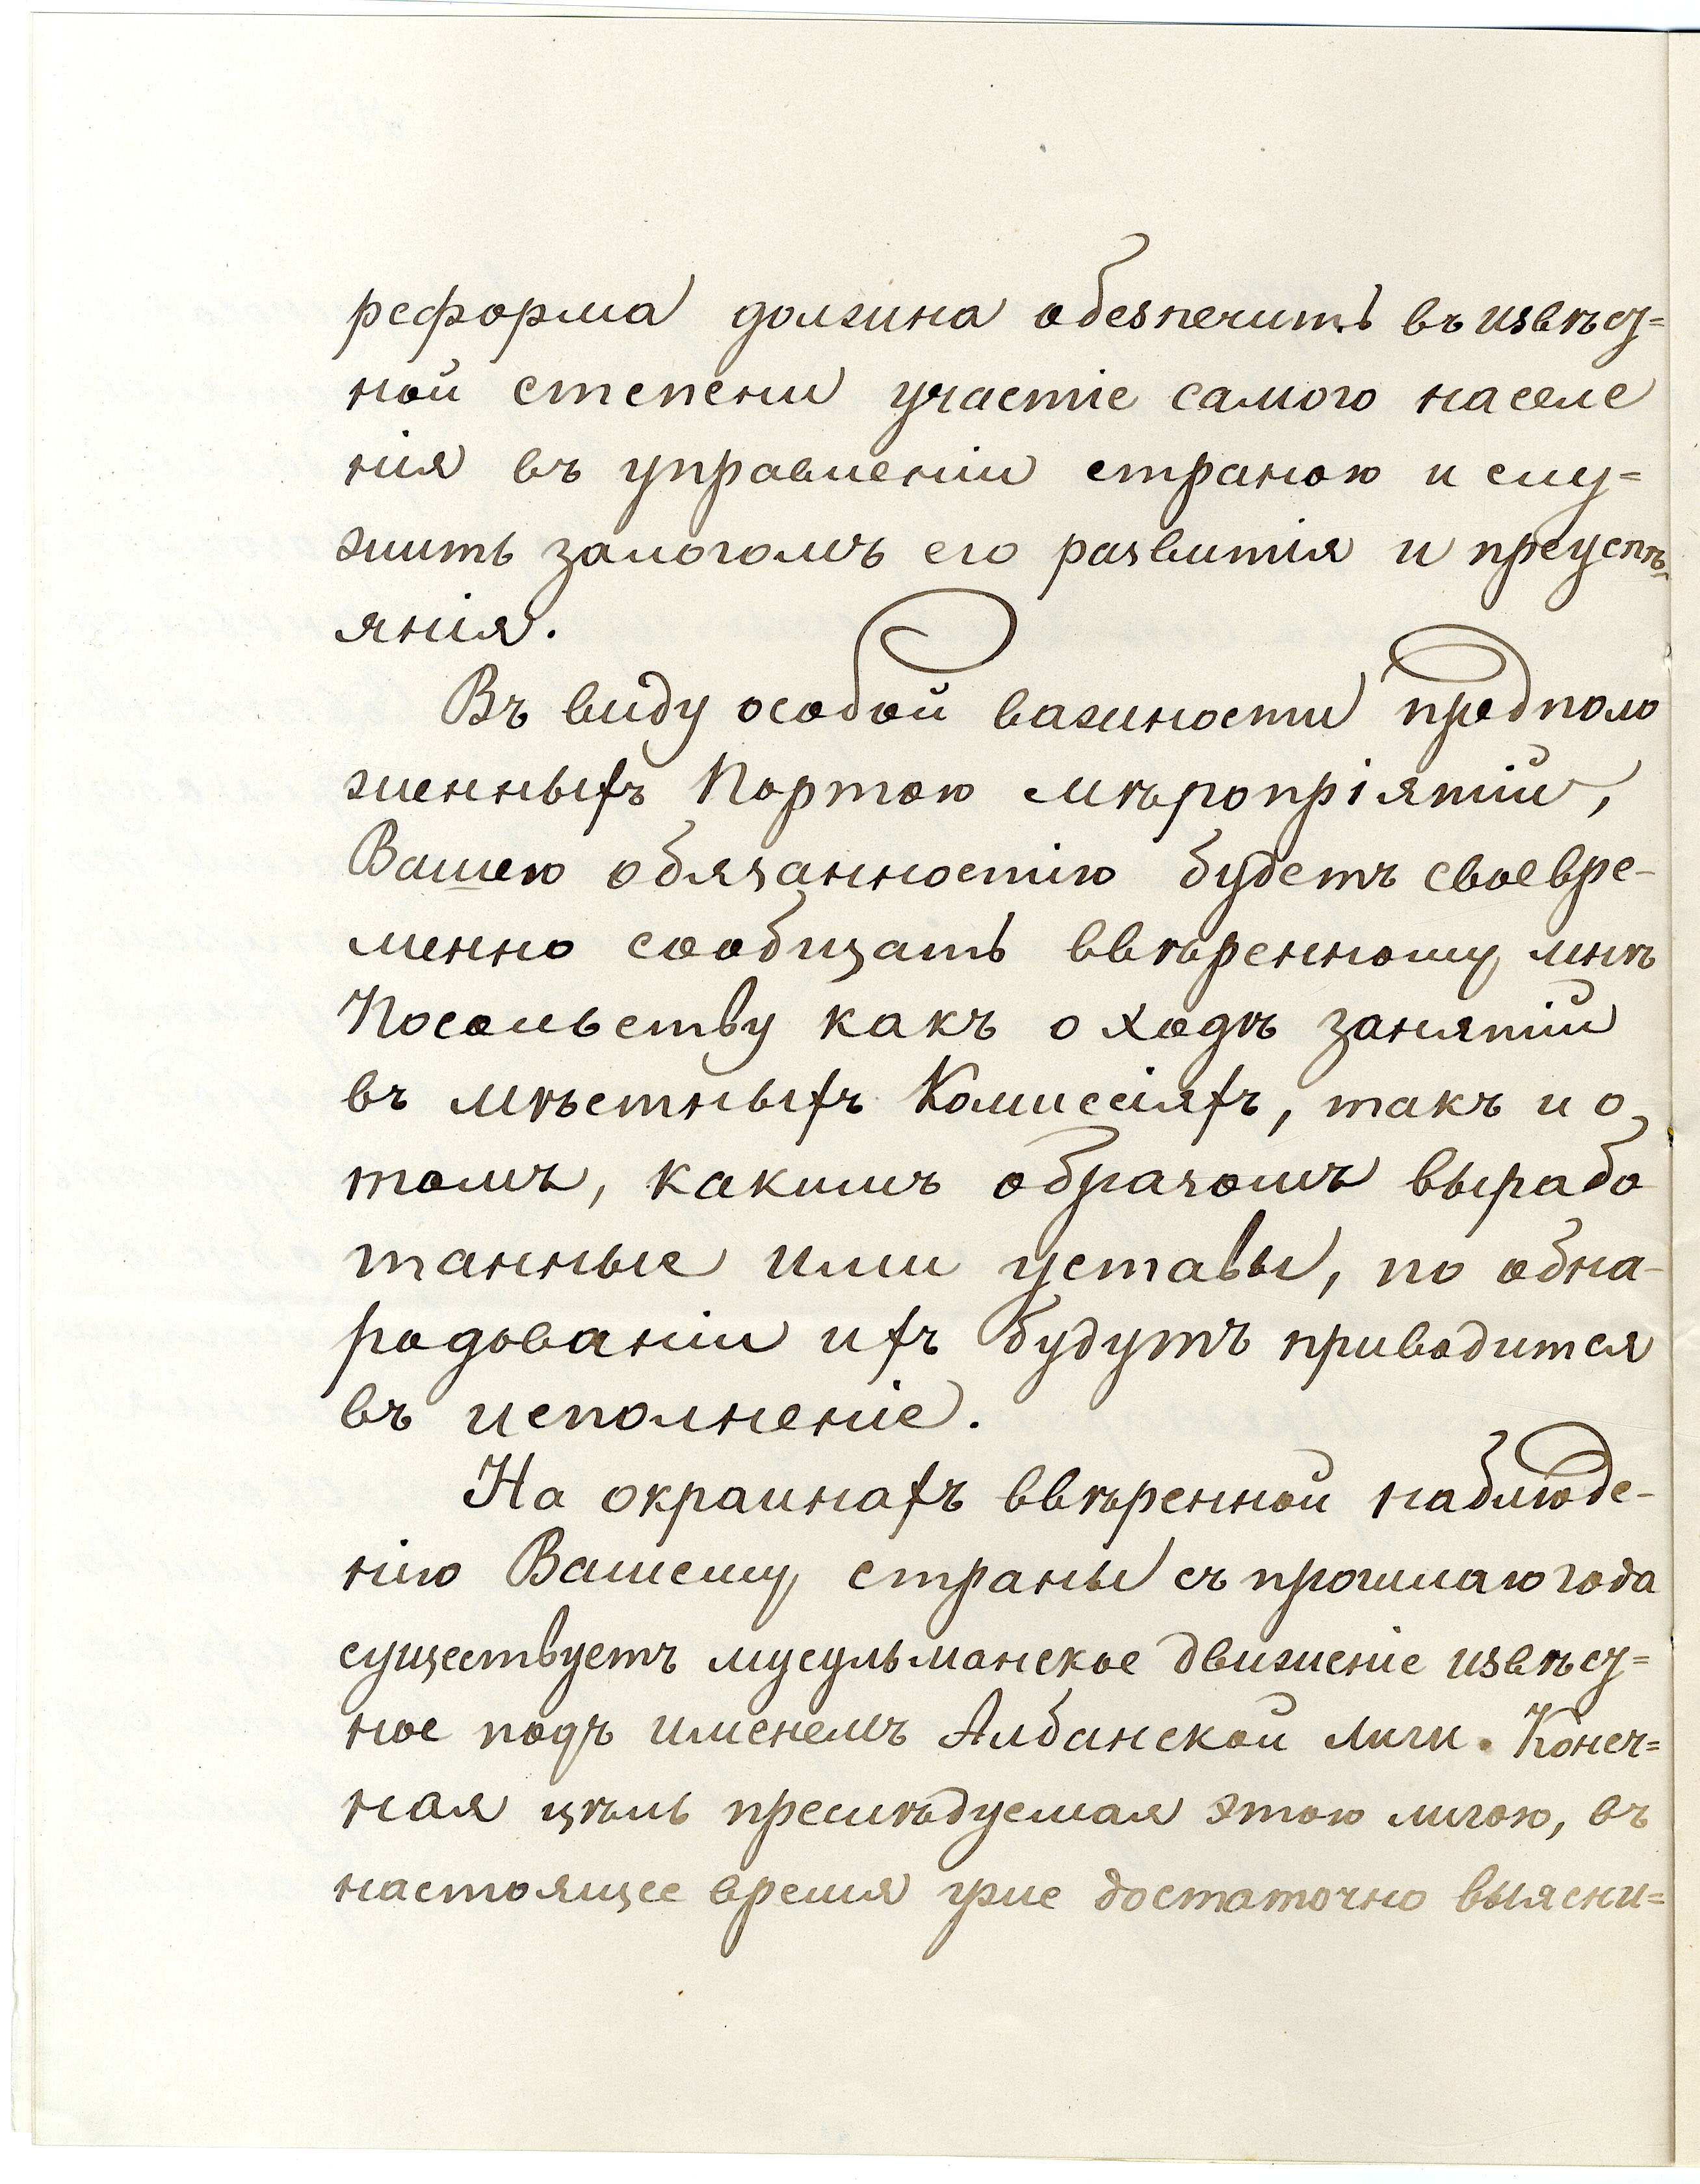 реформа должна обезпечить въ извѣст=
ной степени участіе самого населе
нія въ управленіи страною и слу=
жить залогомъ его развитія и преуспѣ-
янія.
Въ виду особой важности предполо
женныхъ Портою мѣропріятій,
Вашею обязанностію будетъ своевре-
менно сообщать ввѣренному мнѣ
Посольству какъ о ходѣ занятій
въ мѣстныхъ Комиссіяхъ, такъ и о
томъ, какимъ образомъ вырабо
танные ими уставы, по обна-
родованіи ихъ будутъ приводится
въ исполненіе.
На окраинахъ ввѣренной наблюде-
нію Вашему страны съ прошлаго года
существуетъ мусульманское движеніе извѣст=
ное подъ именемъ Албанской лиги. Конеч=
ная цѣль преслѣдуемая этою лигою, въ
настоящее время уже достаточно выясни=